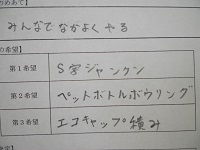 のめあて】
みんなでなかよくやる
の希望】
第1希望 S字ジャンケン
第2希望 ペットボトルボウリング
第3希望 エコキャップ積み